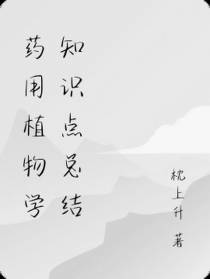 药用植物学
知识点总结
枕上升 著